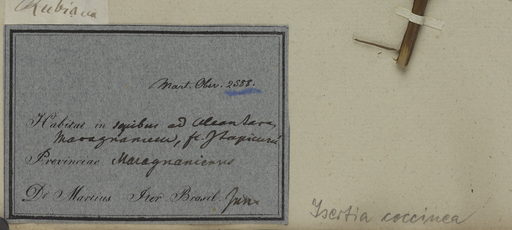 Rubiana
Mart. Obs. 2555.
Habitat in sepibus ad Alcantara,
Maragnanium, fl. Itapicurú
Provinciae Maragnaniensis
Dr Martius Iter Brasil. Jun.
Isertia coccinea